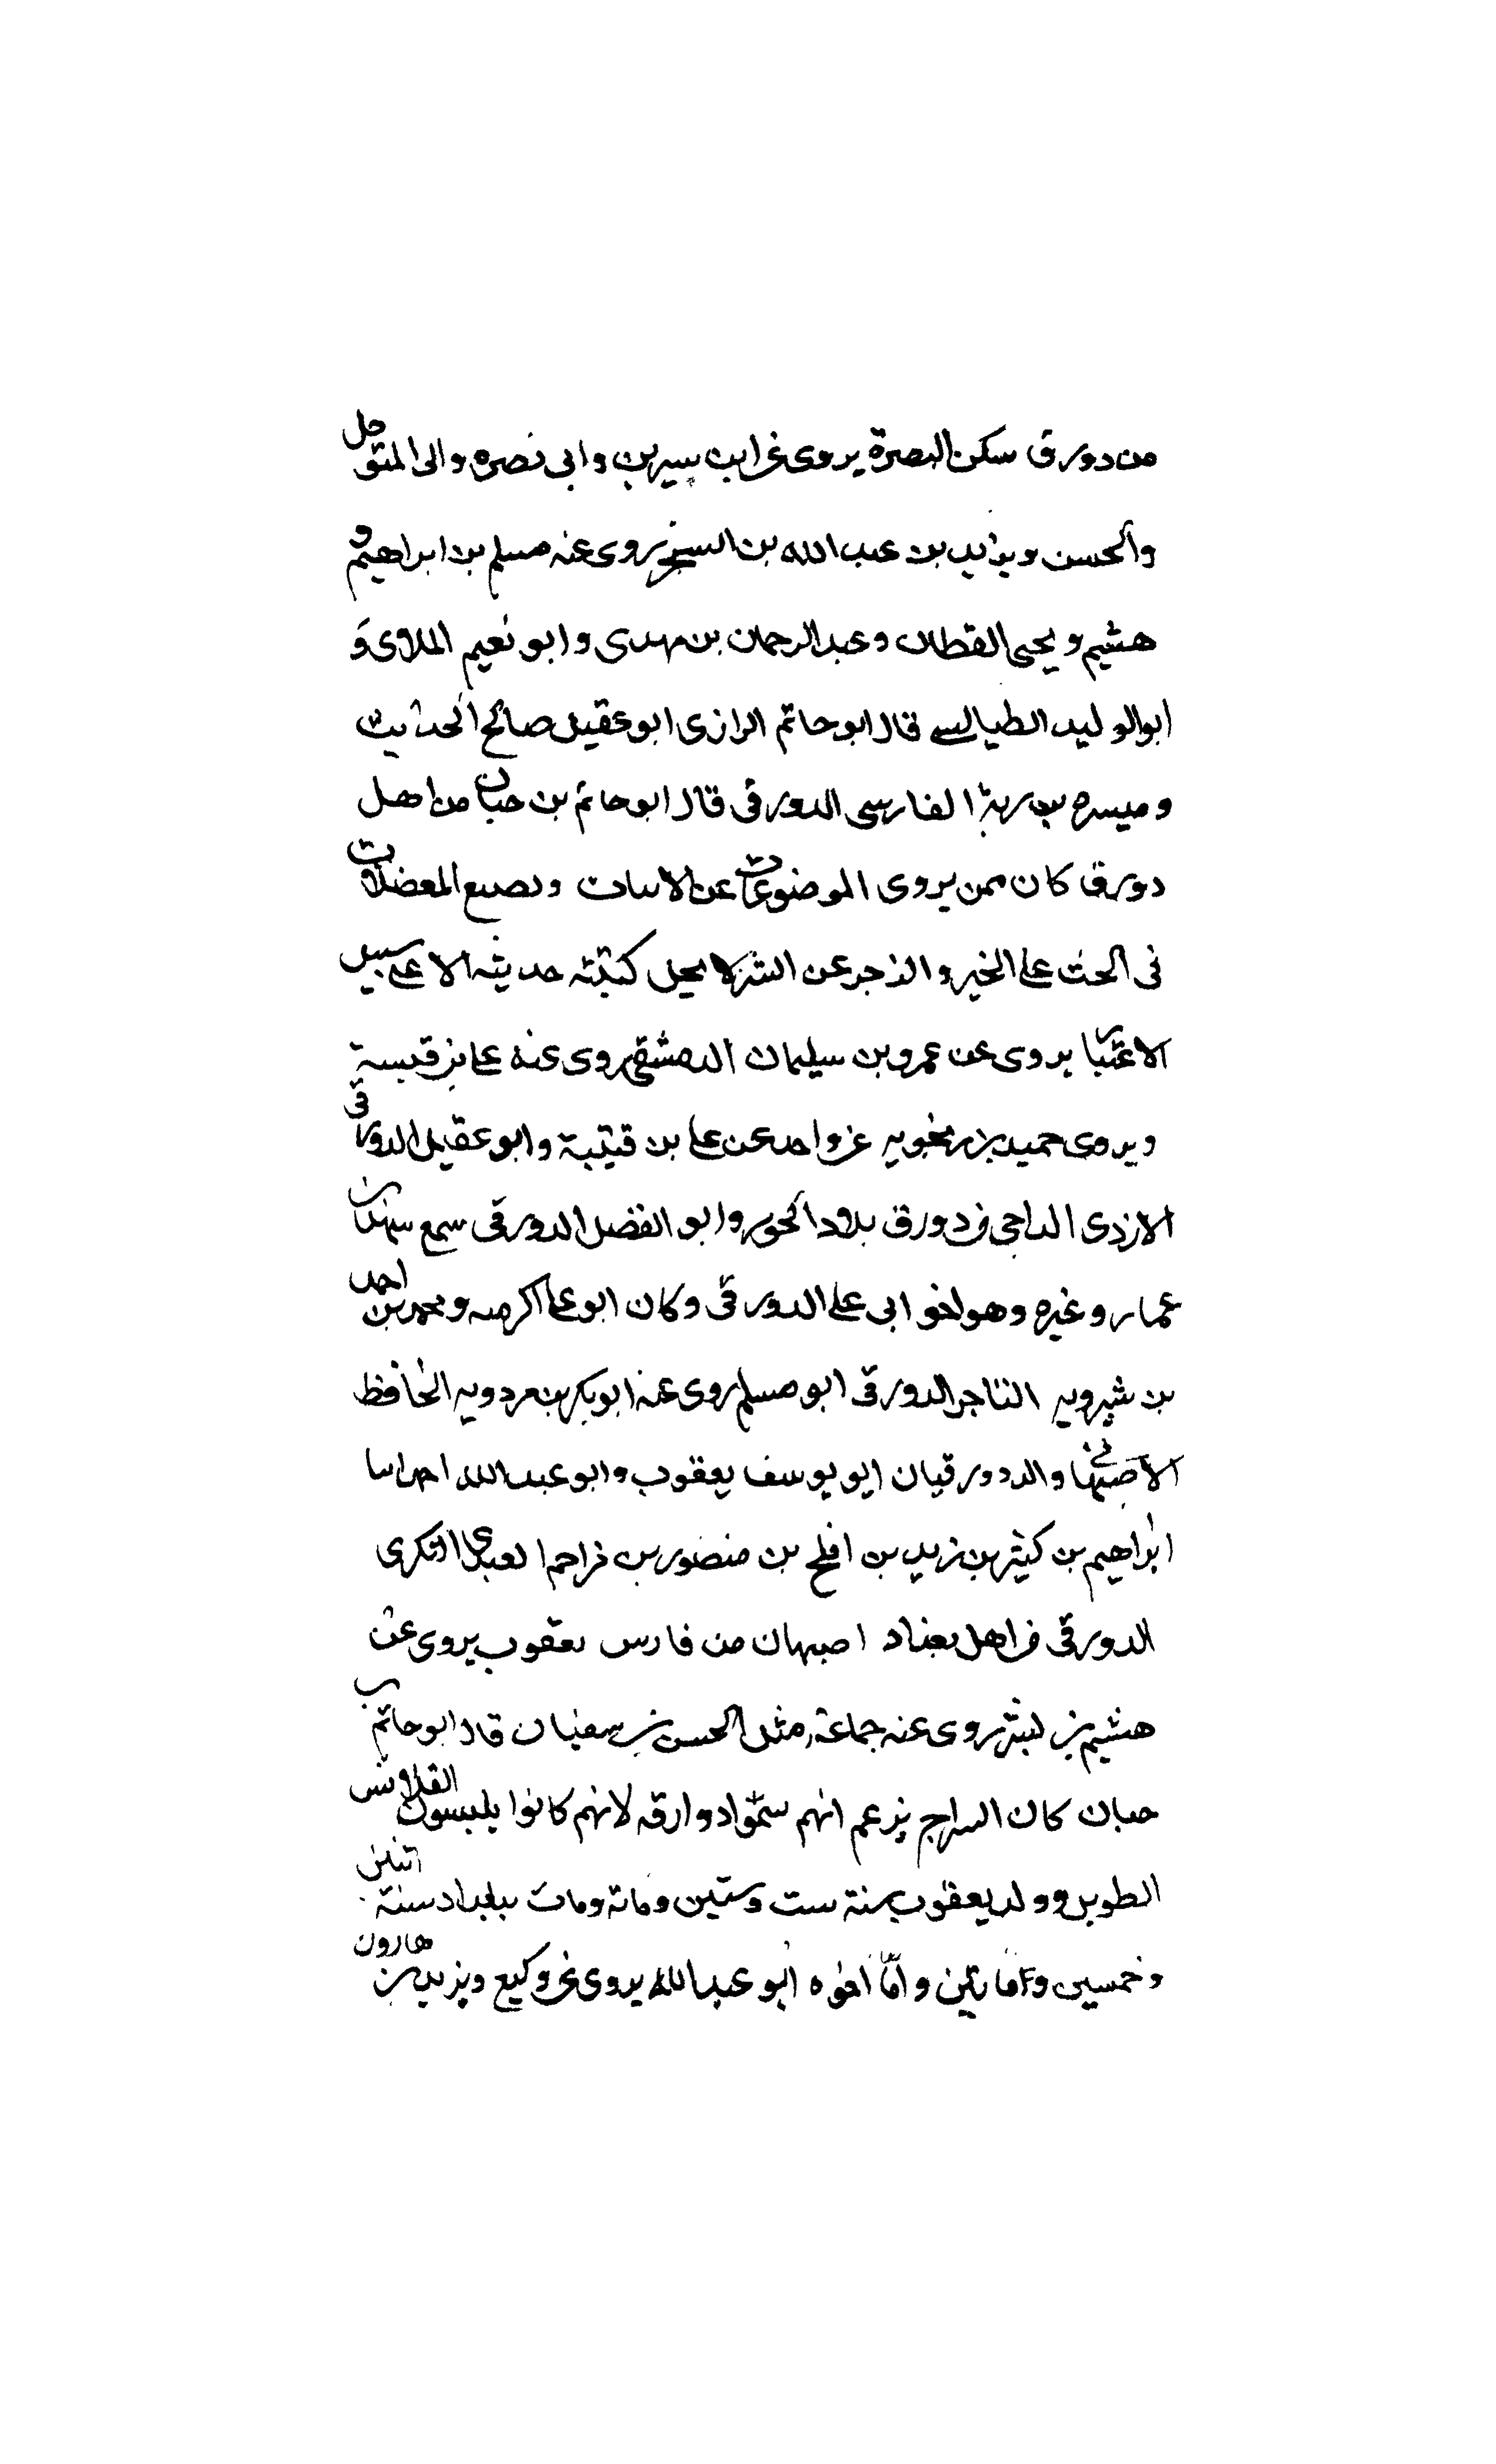 من دورق سكن البصرة يروى عن ابن سيرين وابى نصره والى المتوكل
والحسن ويزيد بن عبد الله بن الشخير روى عنه مسلم بن ابراهيم و
هشيم ويحيى القطان وعبد الرحمان بن مهدى وابو نعيم الملاوى و
ابو الوليد الطيالسى قال ابو حاتم الرازى ابو عقيل صالح الحديث
وميسره بن عبد ربه الفارسى الدورقى قال ابو حاتم بن حبان من اهل
دورق كان ممن يروى الموضوعات عن الاثبات ويضع المعضلات
فى الحث على الخير والزجر عن الشر لا يحل كتبته حديثه الا على سبيل
الاعتبار يروى عن عمرو بن سليمان الدمشقى روى عنه على بن قتيبة
ويروى حميد بن زنجويه عن واحد عن على بن قتيبة وابو عقيل الدورقى
الازدى الناجى من دورق بلاد الخوز وابو الفضل الدورقى سمع سهل بن
عمار وغيره وهو اخو ابى على الدورقى وكان ابو على اكبر منه ومحمد بن احمد
بن شيرويه التاجر الدورقى ابو مسلم روى عنه ابو بكر بن مردويه الحافظ
الاصبهانى والددورقيان ابو يوسف يعقوب وابو عبد الله احمد ابنا
ابراهيم بن كثير بن زيد بن افلح بن منصور بن مزاحم العبدى النكرى
الدورقى من اهل بغداد اصبهان من فارس يعقوب يروى عن
هشيم بن بشير روى عنه جماعة مثل الحسن بن سفيان قال ابو حاتم بن
حبان كان السراج يزعم انهم سموا دوارقه لانهم كانوا يلبسون القلانس
الطويل وولد يعقوب سنة ست وستين ومائة ومات ببغداد سنة اثنين
وخمسين ومايتين وامّا اخوه ابو عبد الله يروى عن وكيع ويزيد بن هارون